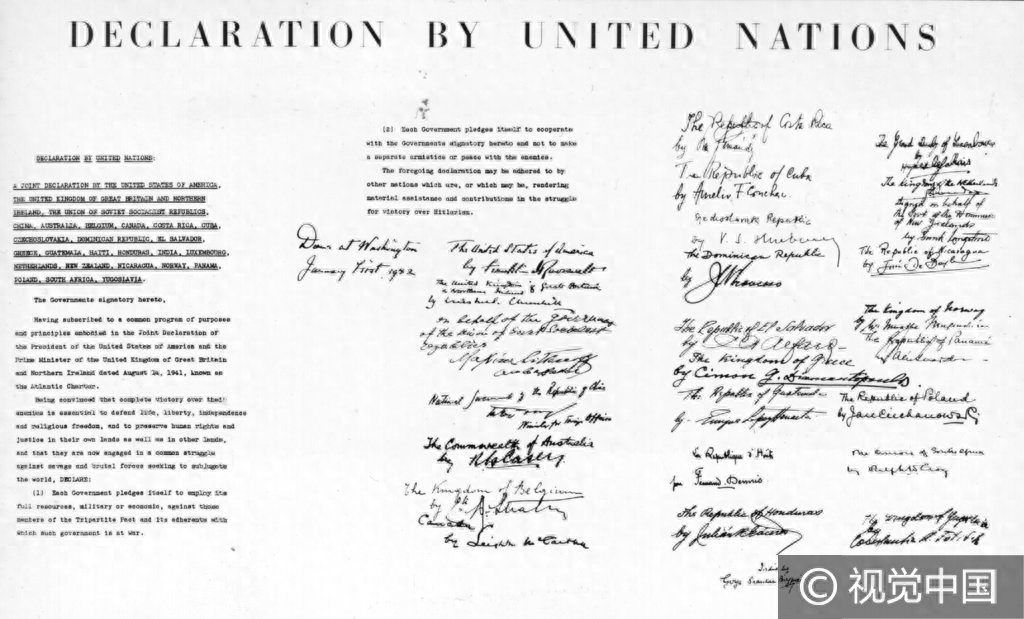 DECLARATION BY UNITED NATIONS
DECLARATION BY UNITED NATIONS:
A JOINT DECLARATION BY THE UNITED STATES OF AMERICA,
THE UNITED KINGDOM OF GREAT BRITAIN AND NORTHERN
IRELAND, THE UNION OF SOVIET SOCIALIST REPUBLICS,
CHINA, AUSTRALIA, BELGIUM, CANADA, COSTA RICA, CUBA,
CZECHOSLOVAKIA, DOMINICAN REPUBLIC, EL SALVADOR,
GREECE, GUATEMALA, HAITI, HONDURAS, INDIA, LUXEMBOURG,
NETHERLANDS, NEW ZEALAND, NICARAGUA, NORWAY, PANAMA,
POLAND, SOUTH AFRICA, YUGOSLAVIA.
The Governments signatory hereto,
Having subscribed to a common program of purposes
and principles embodied in the Joint Declaration of
the President of the United States of America and the
Prime Minister of the United Kingdom of Great Britain
and Northern Ireland dated August 14, 1941, known as
the Atlantic Charter.
Being convinced that complete victory over their
enemies is essential to defend life, liberty, independence
and religious freedom, and to preserve human rights and
justice in their own lands as well as in other lands,
and that they are now engaged in a common struggle
against savage and brutal forces seeking to subjugate
the world, DECLARE:
(1) Each Government pledges itself to employ its
full resources, military or economic, against those
members of the Tripartite Pact and its adherents with
which such government is at war.
(2) Each Government pledges itself to cooperate
with the Governments signatory hereto and not to make
a separate armistice or peace with the enemies.
The foregoing declaration may be adhered to by
other nations which are, or which may be, rendering
material assistance and contributions in the struggle
for victory over Hitlerism.
Done at Washington
January First 1942
The United States of America
by Franklin D Roosevelt
The United Kingdom of Great Britain
& Northern Ireland
by Winston S. Churchill
on behalf of the Government
of the Union of Soviet Socialist
Republics
Maxim Litvinoff
Ambassador
National Government of the Republic of China
Minister for Foreign Affairs
The Commonwealth of Australia
by R G Casey
The Kingdom of Belgium
by
Canada
by Leighton McCarthy
The Republic of Costa Rica
by
The Republic of Cuba
by Aurelio F Concheso
Republic
by V. S. Hurban
The Dominican Republic
by
The Republic of El Salvador
by C A Alfaro
The Kingdom of Greece
by Cimon G. Diamantopoulos
The Republic of Guatemala
by
La Republique d'Haiti
par Fernand Dennis
The Republic of Honduras
by Julián R Cáceres
India by
Girja Shankar Bajpai
The Grand Duchy of Luxembourg
by
The Kingdom of the Netherlands
Signed on behalf of
the Govt of the Dominion
of New Zealand
by Frank Langstone
The Republic of Nicaragua
by
The Kingdom of Norway
by
The Republic of Panama
by
The Republic of Poland
by Jan Ciechanowski
The Union of South Africa
by Ralph W. Close
The Kingdom of Yugoslavia
by
© 视觉中国